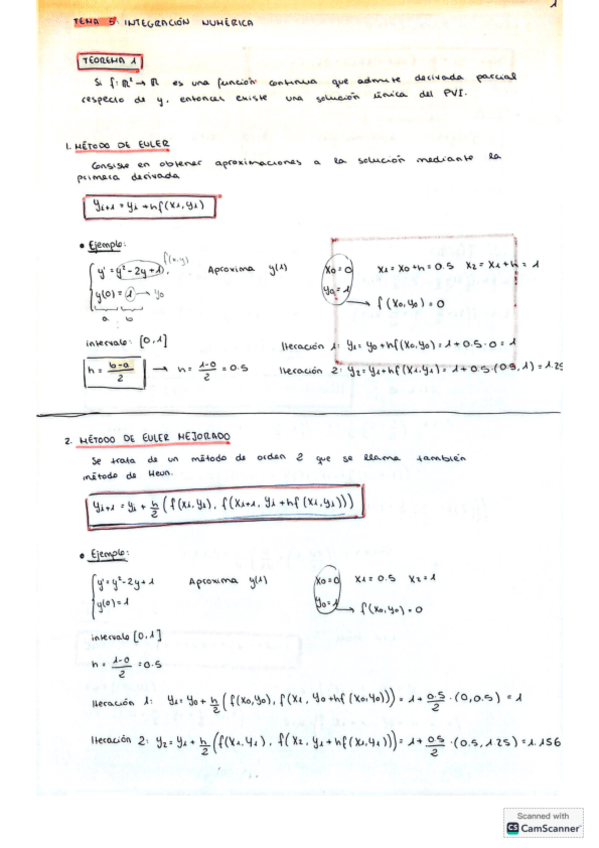 1
TEMA 5: INTEGRACIÓN NUMÉRICA
TEOREMA 1
Si f: ℝ² → ℝ es una función continua que admite derivada parcial
respecto de y, entonces existe una solución única del PVI.
1. MÉTODO DE EULER
Consiste en obtener aproximaciones a la solución mediante la
primera derivada
yi+1 = yi + hf(xi, yi)
• Ejemplo:
f(x,y)
y' = y² - 2y + 1, Aproxima y(1) x0 = 0 x1 = x0 + h = 0.5 x2 = x1 + h = 1
y(0) = 1 → y0 y0 = 1
a b → f(x0, y0) = 0
intervalo: [0, 1] Iteración 1: y1 = y0 + hf(x0, y0) = 1 + 0.5 · 0 = 1
h = b-a/2 → h = 1-0/2 = 0.5 Iteración 2: y2 = y1 + hf(x1, y1) = 1 + 0.5 · (0.5, 1) = 1.25
2. MÉTODO DE EULER MEJORADO
Se trata de un método de orden 2 que se llama también
método de Heun.
yi+1 = yi + h/2 (f(xi, yi), f(xi+1, yi + hf(xi, yi)))
• Ejemplo:
y' = y² - 2y + 1 Aproxima y(1) x0 = 0 x1 = 0.5 x2 = 1
y(0) = 1 y0 = 1 → f(x0, y0) = 0
intervalo [0, 1]
h = 1-0/2 = 0.5
Iteración 1: y1 = y0 + h/2 (f(x0, y0), f(x1, y0 + hf(x0, y0))) = 1 + 0.5/2 · (0, 0.5) = 1
Iteración 2: y2 = y1 + h/2 (f(x1, y1), f(x2, y1 + hf(x1, y1))) = 1 + 0.5/2 · (0.5, 1.25) = 1.156
Scanned with
CS CamScanner